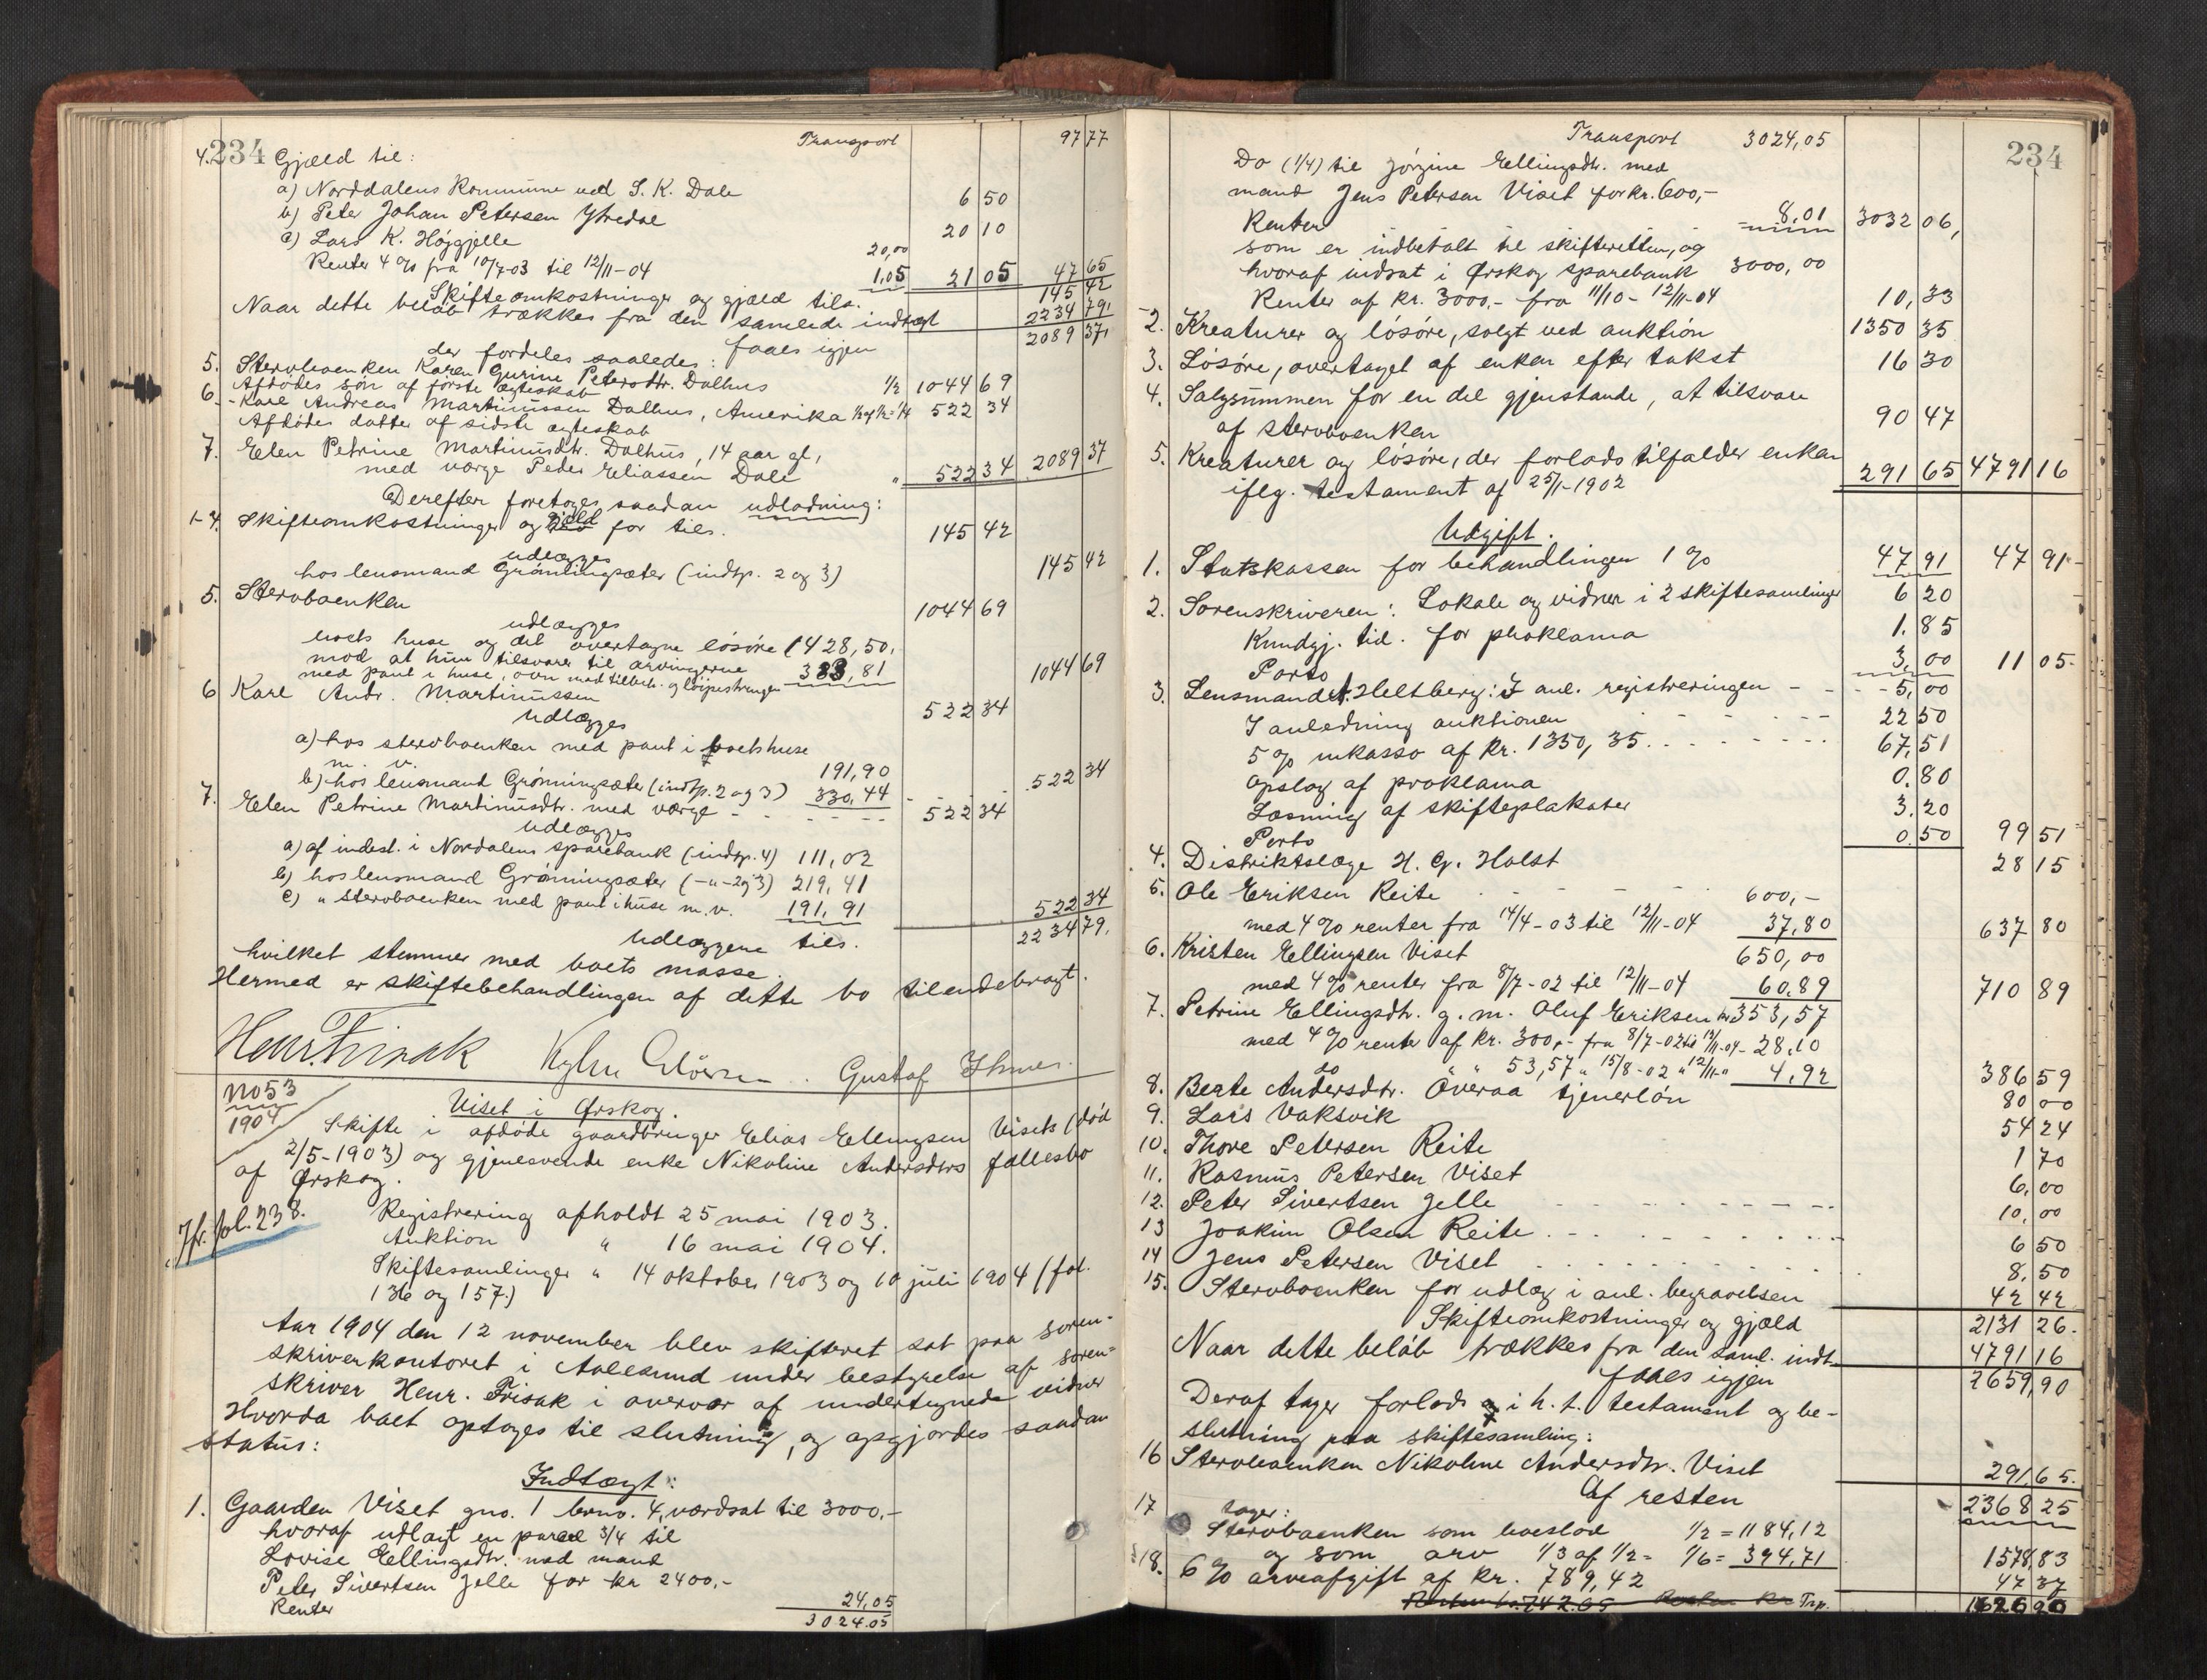 234
Transport 97 77
4. Gjæld til:
a) Norddalens kommune ved S. K. Dale 6 50
b) Peter Johan Petersen Ytredal 20 10
c) Lars K. Højgjelle 20,00
Renter 4 % fra 10/7-03 til 12/11-04 1,05 21 05 47 65
Skifteomkostninger og gjæld tils. 145 42
Naar dette beløb trækkes fra den samlede indtægt 2234 79,
faaes igjen 2089 37,
der fordeles saaledes:
5. Stervboenken Karen Gurine Petersdtr. Dalhus 1/2 1044 69
Afdødes søn af første ægteskab
6. Karl Andreas Martinussen Dalhus, Amerika 1/2 af 1/2 = 1/4 522 34
Afdødes datter af sidste ægteskab
7. Elen Petrine Martinusdtr. Dalhus, 14 aar gl,
med værge Peder Eliassen Dale " 522 34 2089 37
Derefter foretoges saadan udlodning:
1-4. Skifteomkostninger og gjæld for tils. 145 42
udlægges
hos lensmand Grønningsæter (indtp. 2 og 3) 145 42
5. Stervboenken 1044 69
udlægges
boets huse og det overtagne løsøre (1428,50,
mod at hun tilsvarer til arvingerne
med pant i huse, ovn med tilbeh. og løipestrenger 383,81 1044 69
6 Karl Andr. Martinussen 522 34
udlægges
a) hos stervboenken med pant i boets huse
m. v. 191,90
b) hos lensmand Grønningsæter (indtp. 2 og 3) 330,44 522 34
7. Elen Petrine Martinusdtr. med værge 522 34
udlægges
a) af indest. i Nordalens sparebank (indtp. 4) 111,02
b) hos lensmand Grønningsæter (-"- 2 og 3) 219,41
c) " stervboenken med pant i huse m. v. 191,91 522 34
Udlæggene tils. 2234 79,
hvilket stemmer med boets masse.
Hermed er skiftebehandlingen af dette bo tilendebragt.
Henr. Frisak Gustaf
No 53
1904
Viset i Ørskog.
Skifte i afdøde gaardbruger Elias Ellingsen Visets (død
2/5-1903) og gjenlevende enke Nikoline Andersdtrs fællesbo
af Ørskog.
Jfr. fol. 238.
Registrering afholdt 25 mai 1903.
Auktion " 16 mai 1904.
Skiftesamlinger " 14 oktober 1903 og 10 juli 1904 (fol.
136 og 157.)
Aar 1904 den 12 november blev skifteret sat paa soren-
skriverkontoret i Aalesund under bestyrelse af soren-
skriver Henr. Frisak i overvær af undertegnede vidner
Hvorda boet optoges til slutning, og opgjordes saadan
status:
Indtægt:
1. Gaarden Viset gno. 1 brno. 4, værdsat til 3000,-
hvoraf udlagt en parcel 3/4 til
Lovise Ellingsdtr. med mand
Peter Sivertsen Jelle for kr 2400,-
Renter 24,05
3024.05
234
Transport 3024,05
Do (1/4) til Jørgine Ellingsdtr. med
mand Jens Petersen Viset for kr. 600,-
Renter 8,01 3032 06,
som er indbetalt til skifteretten, og
hvoraf indsat i Ørskog sparebank 3000,00
Renter af kr. 3000,- fra 11/10 - 12/11-04 10,33
2. Kreaturer og løsøre, solgt ved auktion 1350 35
3. Løsøre, overtaget af enken efter takst 16 30
4. Salgsummen for en del gjenstande, at tilsvare
af stervboenken 90 47
5. Kreaturer og løsøre, der forlods tilfalder enken
iflg. testament af 25/1-1902 291 65 4791 16
Udgift.
1. Statskassen for behandlingen 1 % 47 91 47 91
2. Sorenskriveren: Lokale og vidner i 2 skiftesamlinger 6 20
Kundgj. tid. for proklama 1.85
Porto 3,00 11 05
3. Lensmand A. Heltberg: I anl. registreringen 5,00
I anledning auktionen 22 50
5 % inkasso af kr. 1350,35 67,51
Opslag af proklama 0.80
Læsning af skifteplakater 3.20
Porto 0.50 99 51
4. Distriktslæge H. G. Holst 28 15
5. Ole Eriksen Reite 600,-
med 4 % renter fra 14/4-03 til 12/11-04 37,80 637 80
6. Kristen Ellingsen Viset 650,00
med 4 % renter fra 8/7-02 til 12/11-04 60.89 710 89
7. Petrine Ellingsdtr. g. m. Oluf Eriksen kr 353,57
med 4 % renter af kr. 300,- fra 8/7-02 til 12/11-04 - 28,10
do " " 53,57 " 15/8-02 " 12/11-" 4,92 386 59
8. Berte Andersdtr. Overaa tjenerløn 80 00
9. Lars Vaksvik 54 24
10. Thore Petersen Reite 1 70
11. Rasmus Petersen Viset 6,00
12. Peter Sivertsen Jelle 10,00
13 Joakim Olsen Reite 6 50
14 Jens Petersen Viset 8,50
15. Stervboenken for udlæg i anl. begravelsen 42 42
Skifteomkostninger og gjæld 2131 26.
Naar dette beløb trækkes fra den saml. indt. 4791 16
faaes igjen 2659,90
Deraf tager forlods i h. t. testament og be-
slutning paa skiftesamling:
16 Stervboenken Nikoline Andersdtr. Viset 291,65.
Af resten 2368 25
17 tager:
Stervboenken som boeslod 1/2 = 1184,12
og som arv 1/3 af 1/2 = 1/6 = 394,71 1578,83
18. 6 % arveafgift af kr. 789,42 47 37
Trp. 1626 20